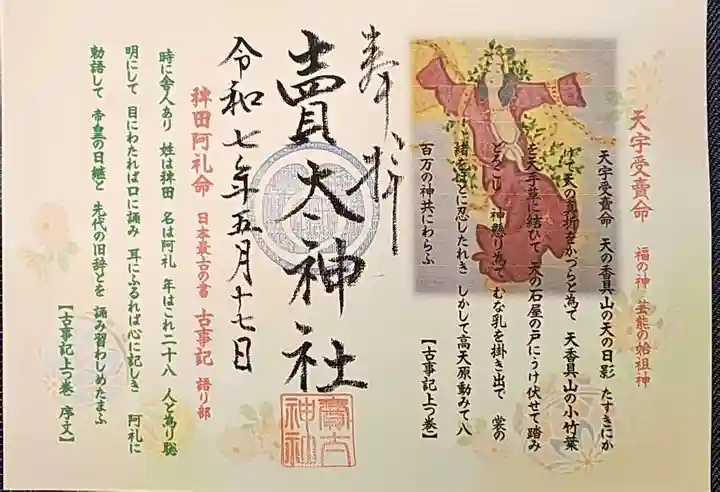 天宇受賣命　福の神　芸能の始祖神
天宇受賣命　天の香具山の天の日影　たすきにか
けて　天の真拆をかづらと為て　天香具山の小竹葉
を天手草に結ひて　天の石屋の戸にうけ伏せて踏み
とどろこし　神懸り為て　むな乳を掛き出で　裳の
緒をほとに忍したれき　しかして高天原動みて　八
百万の神共にわらふ
【古事記上つ巻】
奉拝
賣太神社
賣太神社
令和七年五月十七日
稗田阿礼命　日本最古の書　古事記　語り部
時に舎人あり　姓は稗田　名は阿礼　年はこれ二十八　人と為り聡
明にして　目にわたれば口に誦み　耳にふるれば心に記しき　阿礼に
勅語して　帝皇の日継と　先代の旧辞とを　誦み習わしめたまふ
【古事記上つ巻　序文】